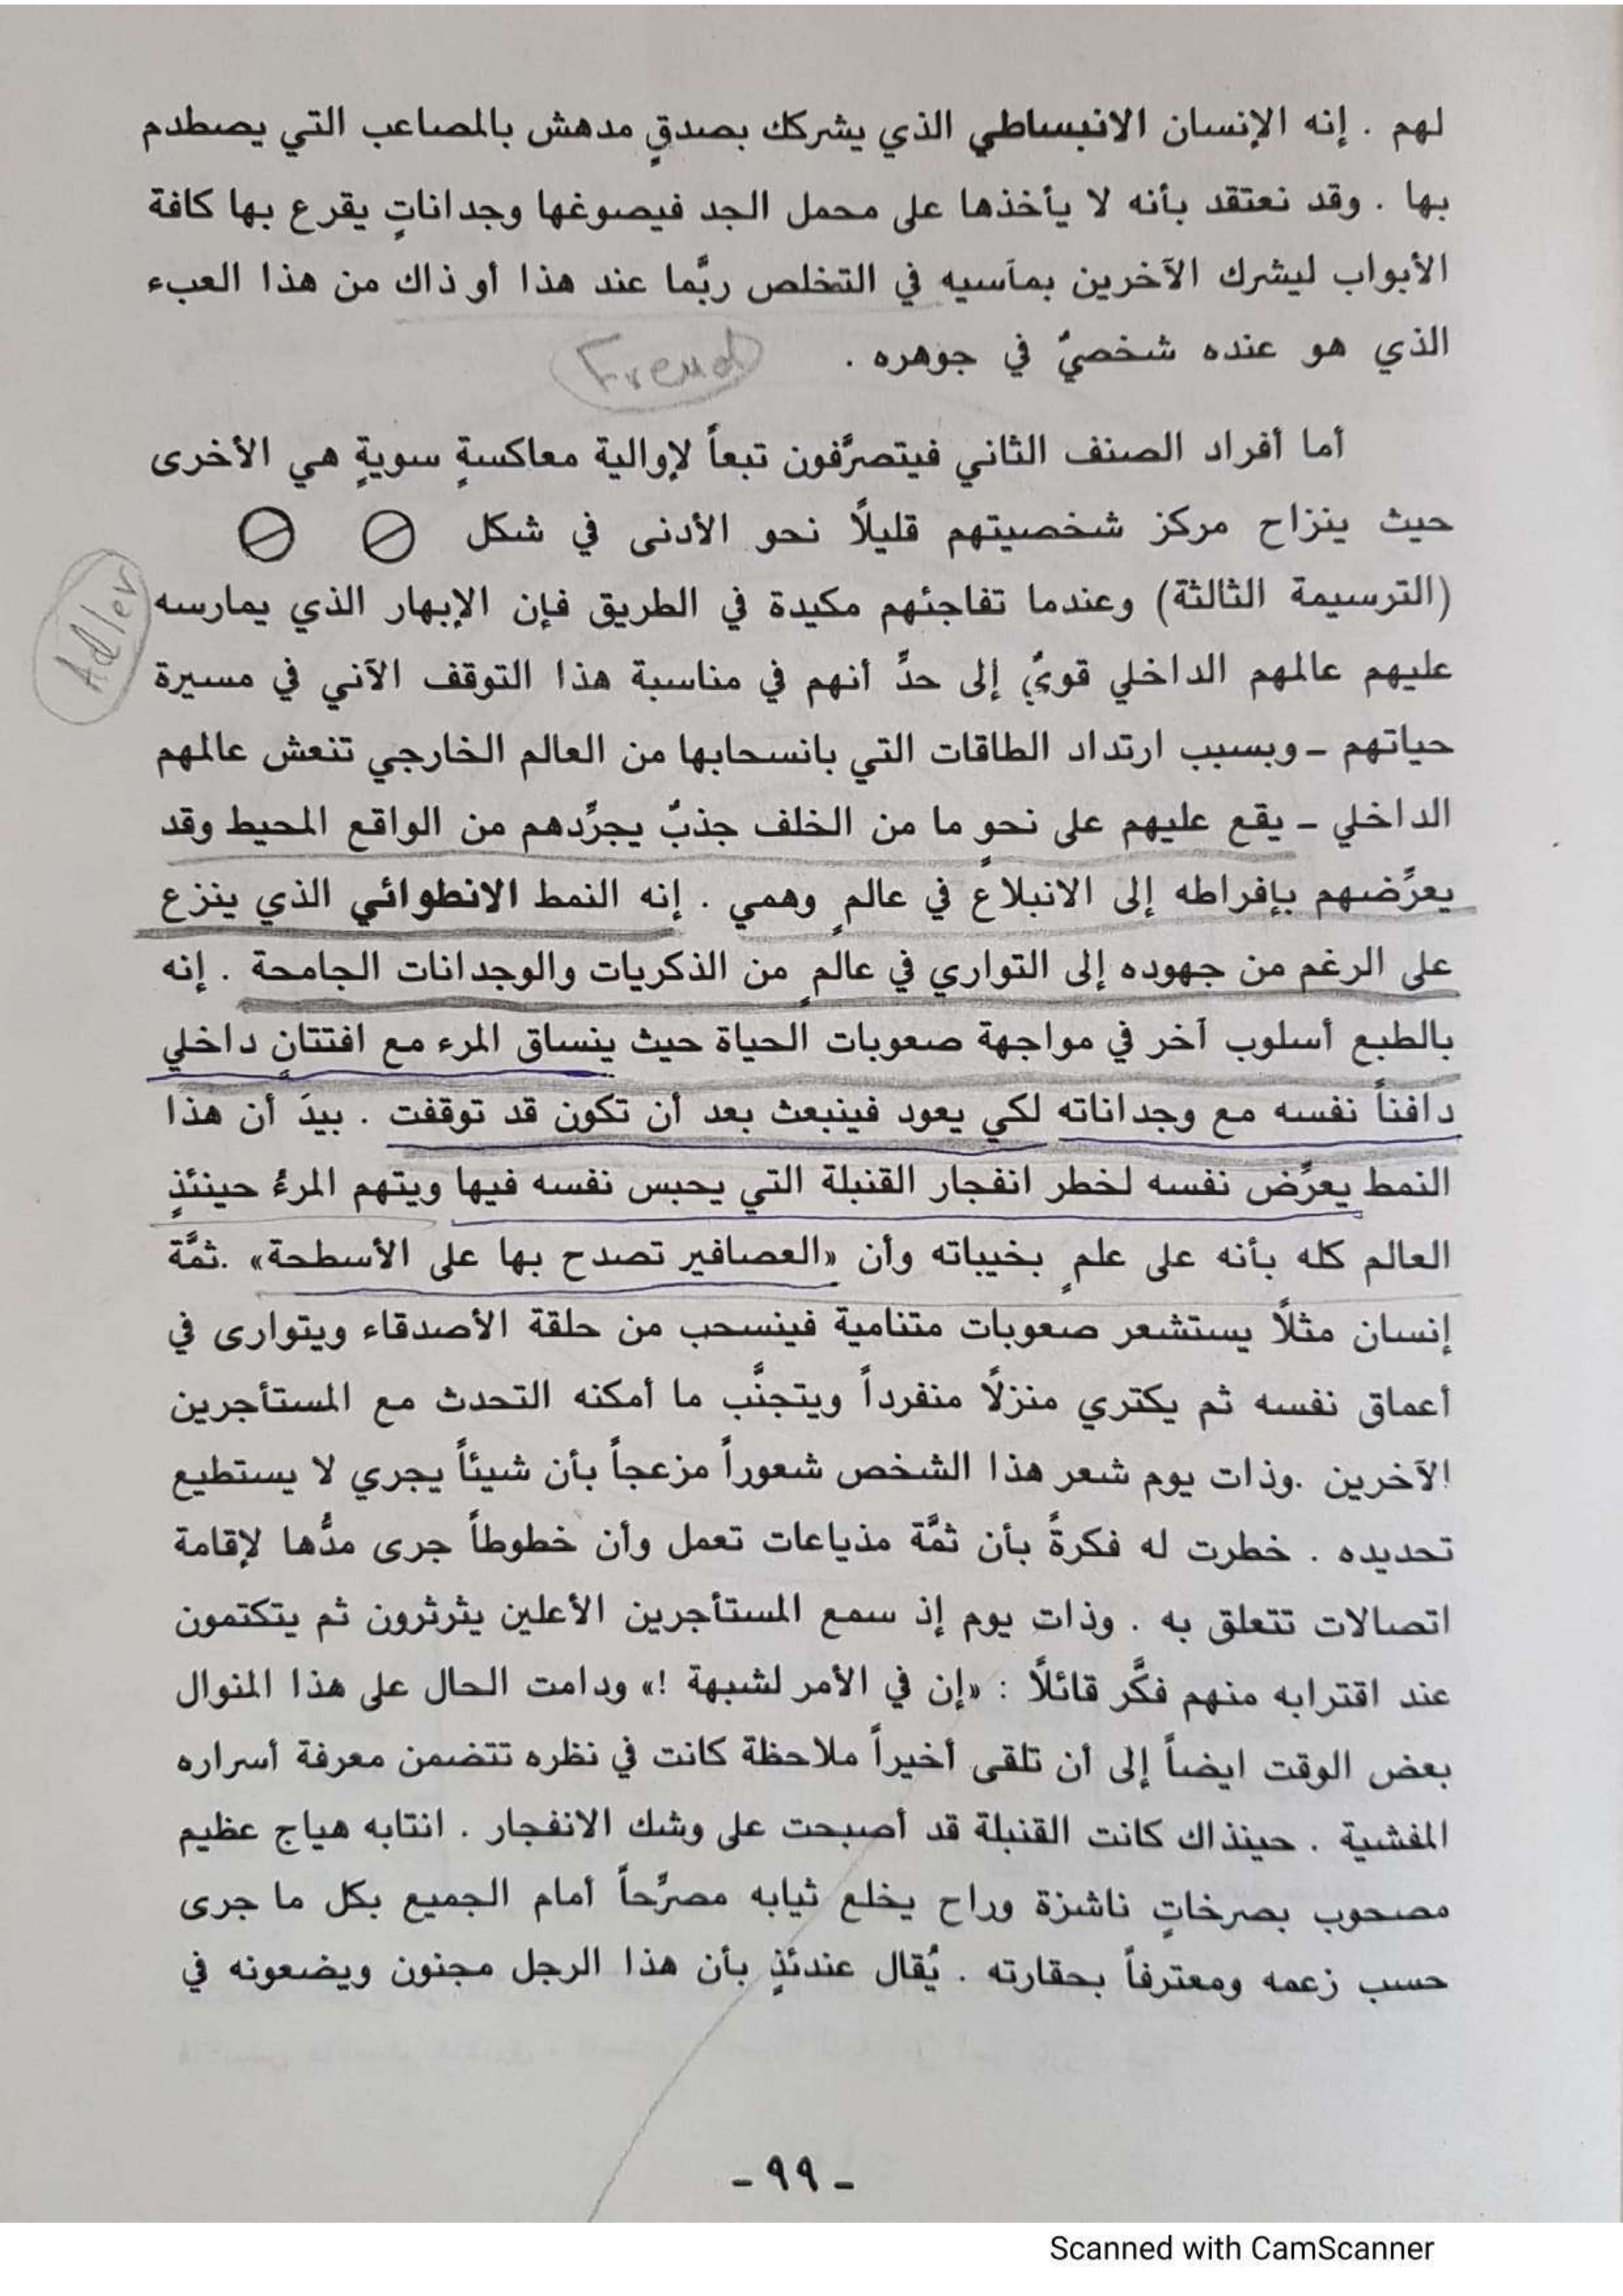 لهم . إنه الإنسان الانبساطي الذي يشركك بصدقٍ مدهش بالمصاعب التي يصطدم
بها . وقد نعتقد بأنه لا يأخذها على محمل الجد فيصوغها وجداناتٍ يقرع بها كافة
الأبواب ليشرك الآخرين بمآسيه في التخلص ربَّما عند هذا أو ذاك من هذا العبء
الذي هو عنده شخصيٌ في جوهره .
Freud
أما أفراد الصنف الثاني فيتصرَّفون تبعاً لإوالية معاكسةٍ سويةٍ هي الأخرى
حيث ينزاح مركز شخصيتهم قليلًا نحو الأدنى في شكل
Adler
(الترسيمة الثالثة) وعندما تفاجئهم مكيدة في الطريق فإن الإبهار الذي يمارسه
عليهم عالمهم الداخلي قويٌ إلى حدِّ أنهم في مناسبة هذا التوقف الآني في مسيرة
حياتهم ـ وبسبب ارتداد الطاقات التي بانسحابها من العالم الخارجي تنعش عالمهم
الداخلي ـ يقع عليهم على نحوٍ ما من الخلف جذبٌ يجرِّدهم من الواقع المحيط وقد
يعرِّضهم بإفراطه إلى الانبلاع في عالمٍ وهمي . إنه النمط الانطوائي الذي ينزع
على الرغم من جهوده إلى التواري في عالمٍ من الذكريات والوجدانات الجامحة . إنه
بالطبع أسلوب آخر في مواجهة صعوبات الحياة حيث ينساق المرء مع افتتانٍ داخلي
دافناً نفسه مع وجداناته لكي يعود فينبعث بعد أن تكون قد توقفت . بيدَ أن هذا
النمط يعرِّض نفسه لخطر انفجار القنبلة التي يحبس نفسه فيها ويتهم المرءُ حينئذٍ
العالم كله بأنه على علمٍ بخيباته وأن «العصافير تصدح بها على الأسطحة» .ثمَّة
إنسان مثلًا يستشعر صعوبات متنامية فينسحب من حلقة الأصدقاء ويتوارى في
أعماق نفسه ثم يكتري منزلًا منفرداً ويتجنَّب ما أمكنه التحدث مع المستأجرين
الآخرين .وذات يوم شعر هذا الشخص شعوراً مزعجاً بأن شيئاً يجري لا يستطيع
تحديده . خطرت له فكرةٌ بأن ثمَّة مذياعات تعمل وأن خطوطاً جرى مدُّها لإقامة
اتصالات تتعلق به . وذات يوم إذ سمع المستأجرين الأعلين يثرثرون ثم يتكتمون
عند اقترابه منهم فكَّر قائلًا : «إن في الأمر لشبهة !» ودامت الحال على هذا المنوال
بعض الوقت ايضاً إلى أن تلقى أخيراً ملاحظة كانت في نظره تتضمن معرفة أسراره
المفشية . حينذاك كانت القنبلة قد أصبحت على وشك الانفجار . انتابه هياج عظيم
مصحوب بصرخاتٍ ناشزة وراح يخلع ثيابه مصرِّحاً أمام الجميع بكل ما جرى
حسب زعمه ومعترفاً بحقارته . يُقال عندئذٍ بأن هذا الرجل مجنون ويضعونه في
ـ ٩٩ ـ
Scanned with CamScanner